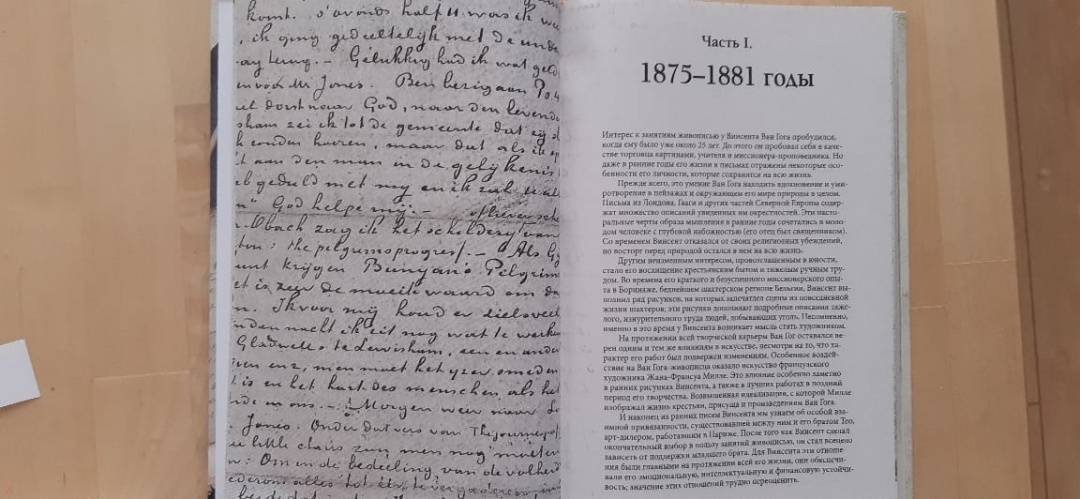 komt. s'avonds half 11 was ik we
ik ging gedeeltelijk met de unde
ay terug. – Gelukkig had ik wat geld
en voor Mr Jones. Ben bezig aan Ps.
et dorst naar God, naar den levende
sham zei ik tot de gemeente dat zij
zouden hooren, maar dat als ik
aan den man in de gelijkenis
eb geduld met mij en ik zal U al
n" God helpe mij. –
Obach zag ik het schilderij van
ton: the pilgrims progress. – Als G
unt krijgen Bunyan's Pilgrim
et is zeer de moeite waard om da
n. Ik voor mij houd er zielsveel
nden nacht ik zit nog wat te werken
Gladwell & te Lewisham, een en ander
ven enz, men moet het yzer smeden
t is en het hart des menschen als het
nde in ons. – Morgen weer naar Lo
Jones. Onder dat vers van The journey of
ne little chain zou men nog moeten
n: Om in de bedeeling van de volheid
Часть I.
1875–1881 годы
Интерес к занятиям живописью у Винсента Ван Гога пробудился,
когда ему было уже около 25 лет. До этого он пробовал себя в каче-
стве торговца картинами, учителя и миссионера-проповедника. Но
даже в ранние годы его жизни в письмах отражены некоторые осо-
бенности его личности, которые сохранятся на всю жизнь.
Прежде всего, это умение Ван Гога находить вдохновение и уми-
ротворение в пейзажах и окружающем его мире природы в целом.
Письма из Лондона, Гааги и других частей Северной Европы содер-
жат множество описаний увиденных им окрестностей. Эти пасто-
ральные черты образа мышления в ранние годы сочетались в моло-
дом человеке с глубокой набожностью (его отец был священником).
Со временем Винсент отказался от своих религиозных убеждений,
но восторг перед природой остался в нем на всю жизнь.
Другим неизменным интересом, провозглашенным в юности,
стало его восхищение крестьянским бытом и тяжелым ручным тру-
дом. Во времена его краткого и безуспешного миссионерского опы-
та в Боринаже, беднейшем шахтерском регионе Бельгии, Винсент вы-
полнил ряд рисунков, на которых запечатлел сцены из повседневной
жизни шахтеров; эти рисунки дополняют подробные описания тяже-
лого, изнурительного труда людей, добывающих уголь. Несомненно,
именно в это время у Винсента возникает мысль стать художником.
На протяжении всей творческой карьеры Ван Гог оставался ве-
рен одним и тем же кумирам в искусстве, несмотря на то, что ха-
рактер его работ был подвержен изменениям. Особенное воздей-
ствие на Ван Гога-живописца оказало искусство французского
художника Жана-Франсуа Милле. Это влияние особенно заметно
в ранних рисунках Винсента, а также в лучших работах в поздний
период его творчества. Возвышенная идеализация, с которой Милле
изображал жизнь крестьян, присуща и произведениям Ван Гога.
И наконец из ранних писем Винсента мы узнаем об особой вза-
имной привязанности, существовавшей между ним и его братом Тео,
арт-дилером, работавшим в Париже. После того как Винсент сделал
окончательный выбор в пользу занятий живописью, он стал всецело
зависеть от поддержки младшего брата. Для Винсента эти отноше-
ния были главными на протяжении всей его жизни, они обеспечи-
вали его эмоциональную, интеллектуальную и финансовую устойчи-
вость; значение этих отношений трудно переоценить.